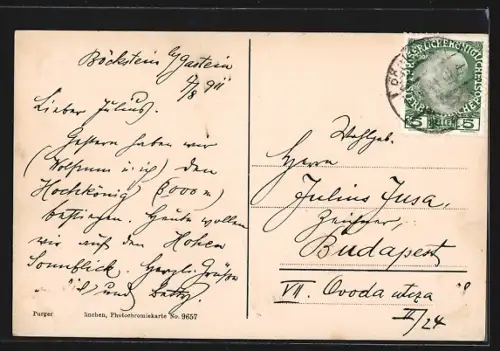 Böckstein b/ Gastein
7/8 911
Lieber Julius.
Gestern haben wir
(Wolfrum u. ich) den
Hochkönig (3000 m)
bestiegen. Heute wollen
wir auf den Hohen
Sonnblick. Herzl. Grüße
und
Purger München, Photochromiekarte No. 9657
5 5
Wohlgeb.
Herrn
Julius Jusa,
Zeichner,
Budapest
VII. Ovoda utcza
II/24